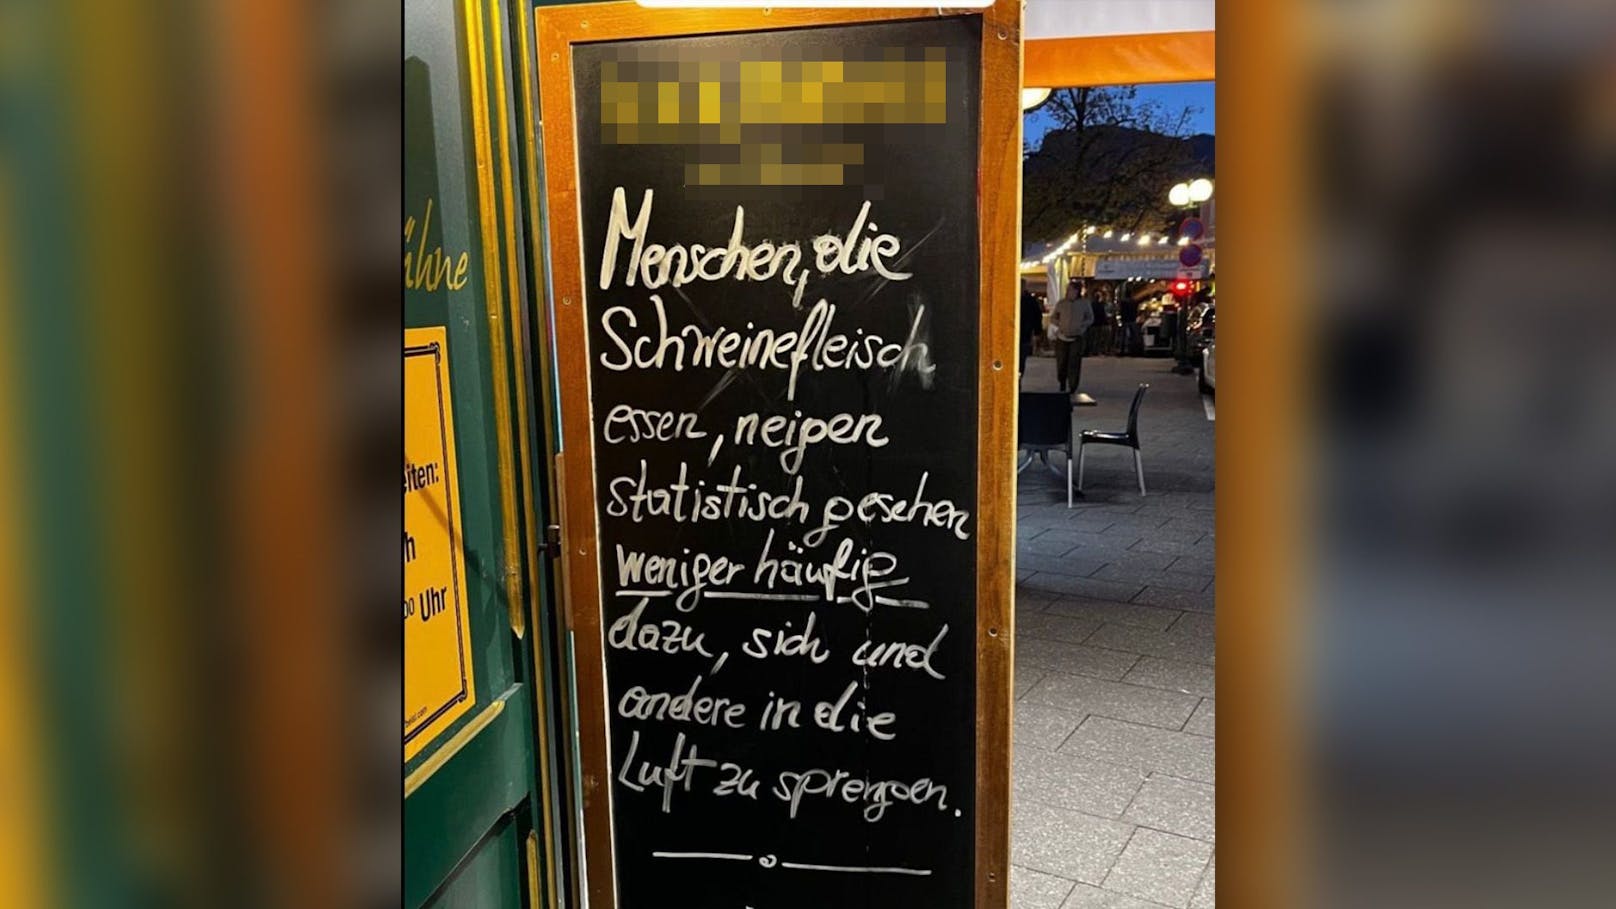 ühne
eiten:
h
00 Uhr
Menschen, die
Schweinefleisch
essen, neigen
statistisch gesehen
weniger häufig
dazu, sich und
andere in die
Luft zu sprengen.